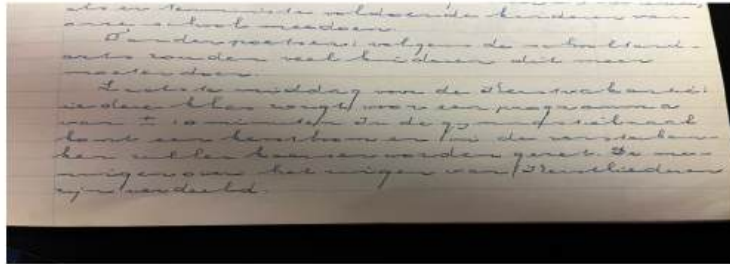 als er tenminste voldoende kinderen van
onze school meedoen.
Tandenpoetsen: volgens de schooltand-
arts zouden veel kinderen dit meer
moeten doen.
Laatste middag voor de Kerstvakantie:
iedere klas zorgt voor een programma
van ± 10 minuten. In de gymnastiekzaal
komt een kerstboom en in de vensterban-
ken zullen kaarsen worden gezet. De me-
ningen over het zingen van Kerstliederen
zijn verdeeld.